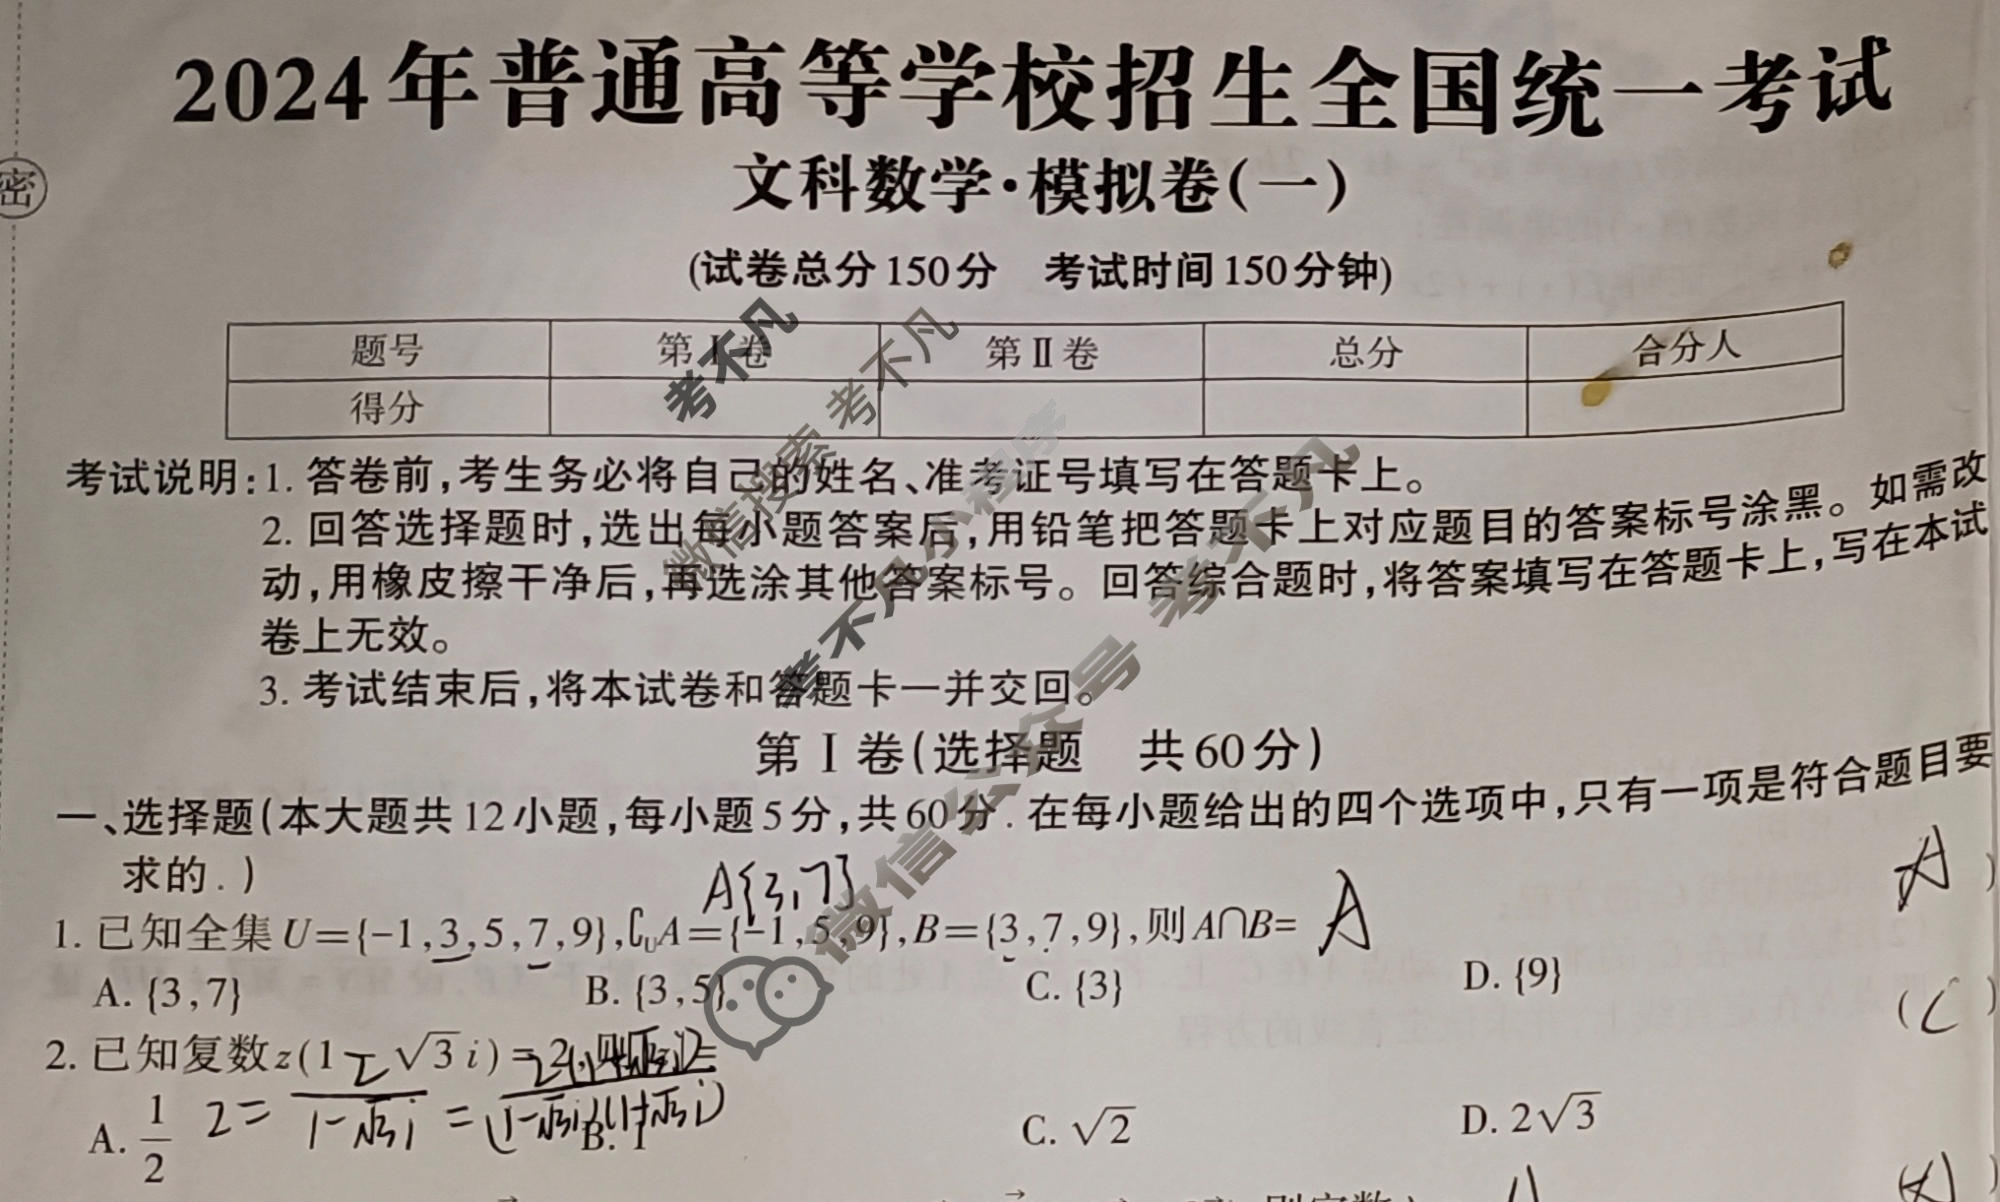 2024年普通高等学校招生全国统一考试
密
文科数学·模拟卷(一)
(试卷总分150分 考试时间150分钟)
题号 第Ⅰ卷 第Ⅱ卷 总分 合分人
得分
考不凡
微信搜索 考不凡
考不凡小程序
微信公众号 考不凡
考试说明:1. 答卷前,考生务必将自己的姓名、准考证号填写在答题卡上。
2. 回答选择题时,选出每小题答案后,用铅笔把答题卡上对应题目的答案标号涂黑。如需改
动,用橡皮擦干净后,再选涂其他答案标号。回答综合题时,将答案填写在答题卡上,写在本试
卷上无效。
3. 考试结束后,将本试卷和答题卡一并交回。
第Ⅰ卷(选择题 共60分)
一、选择题(本大题共12小题,每小题5分,共60分.在每小题给出的四个选项中,只有一项是符合题目要
求的.)
A{3,7}
A )
1. 已知全集U={-1,3,5,7,9},∁UA={-1,5,9},B={3,7,9},则A∩B= A
A. {3,7} B. {3,5} C. {3} D. {9}
( C )
2. 已知复数z(1-√3i)=2,则|z|=
A. 1/2 B. 1 C. √2 D. 2√3
2 = 2/(1-√3i) = 2(1+√3i)/((1-√3i)(1+√3i))